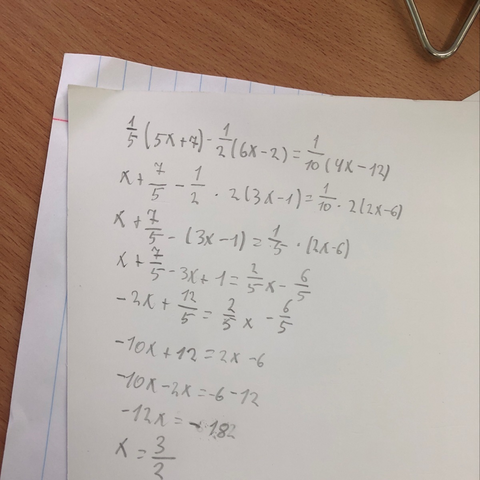 1/5 (5x+7) - 1/2 (6x-2) = 1/10 (4x-12)
x + 7/5 - 1/2 · 2(3x-1) = 1/10 · 2(2x-6)
x + 7/5 - (3x-1) = 1/5 · (2x-6)
x + 7/5 - 3x + 1 = 2/5 x - 6/5
-2x + 12/5 = 2/5 x - 6/5
-10x + 12 = 2x - 6
-10x - 2x = -6 - 12
-12x =
x = 3/2